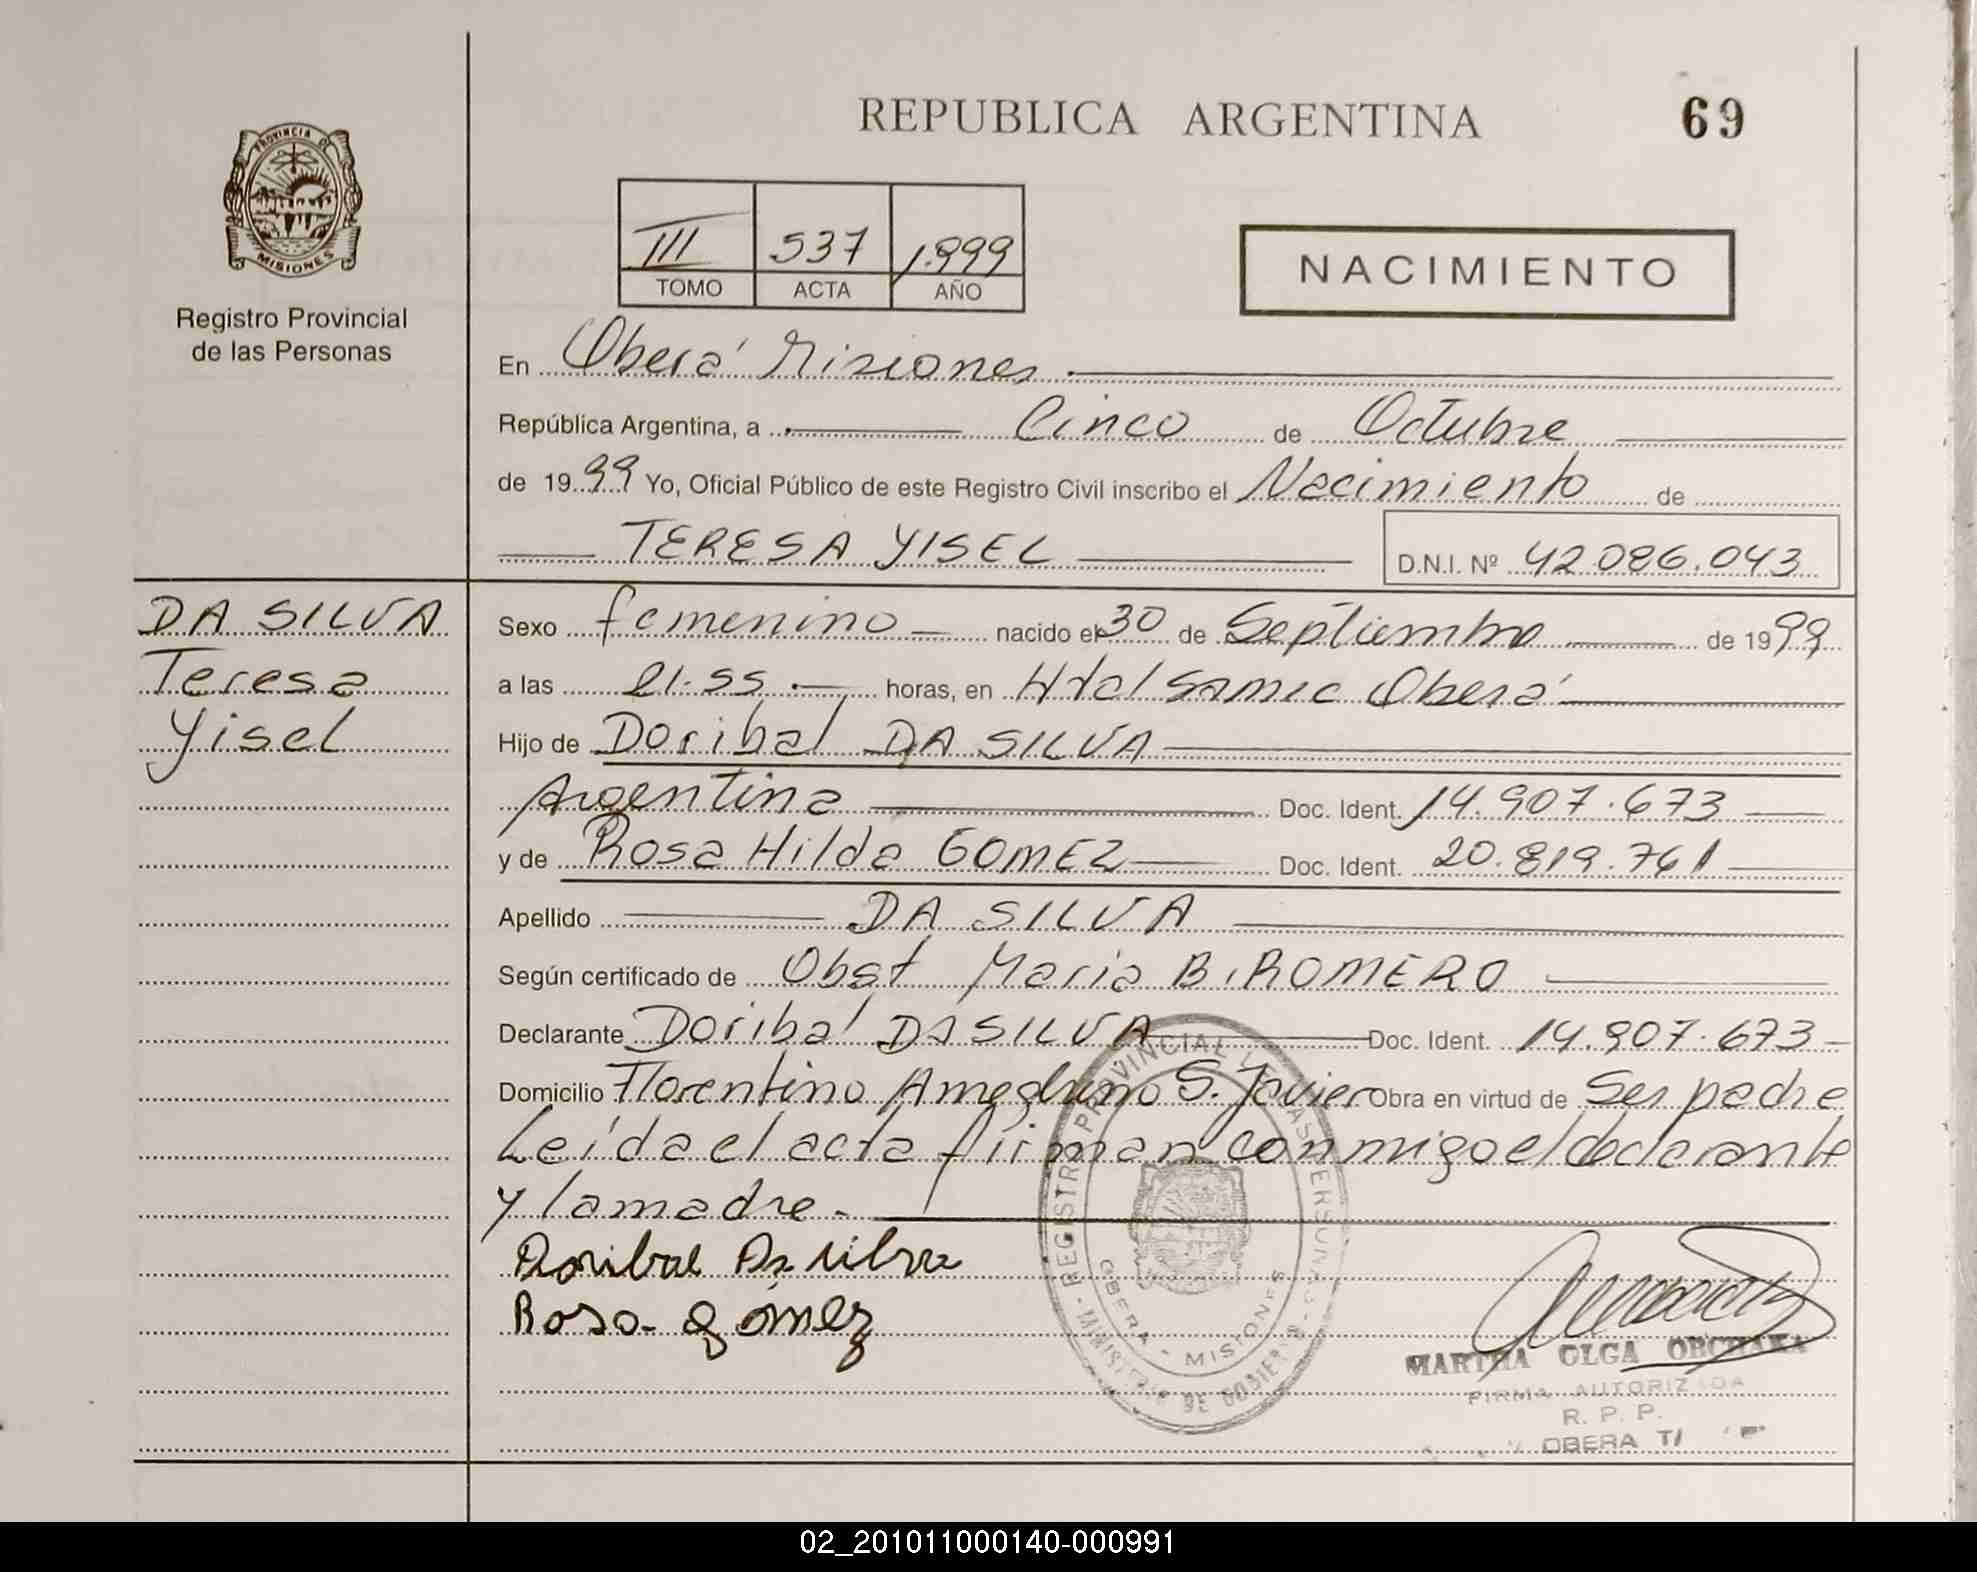 REPUBLICA ARGENTINA
69
PROVINCIA DE
MISIONES
Registro Provincial
de las Personas
III 537 1.999
TOMO ACTA AÑO
NACIMIENTO
En Oberá Misiones.
República Argentina, a Cinco de Octubre
de 1999 Yo, Oficial Público de este Registro Civil inscribo el Nacimiento de
TERESA YISEL
D.N.I. Nº 42.086.043
DA SILVA
Teresa
Yisel
Sexo femenino nacido el 30 de Septiembre de 1999
a las 21.55 horas, en Htal Samic Oberá
Hijo de Doribal DA SILVA
Argentina Doc. Ident. 14.907.673
y de Rosa Hilda GOMEZ Doc. Ident. 20.819.761
Apellido DA SILVA
Según certificado de Obst Maria B. ROMERO
Declarante Doribal DA SILVA Doc. Ident. 14.907.673
Domicilio Florentino S. Javier Obra en virtud de Ser padre
Leída el acta firman conmigo el declarante
y la madre.
Doribal Da silva
Rosa Gómez
REGISTRO PROVINCIAL DE LAS PERSONAS
OBERA - MISIONES
MINISTERIO DE GOBIERNO
MARTHA OLGA ORCHAKA
FIRMA AUTORIZADA
R. P. P.
OBERA
02_201011000140-000991